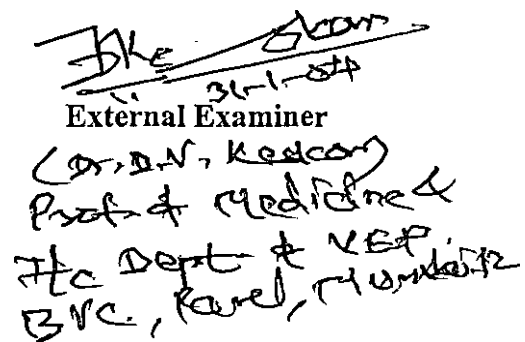 31-1-04
External Examiner
(Dr. D.N. Kadam)
Prof. of Medicine &
I/c Dept. of VEP.
BVC., Parel, Mumbai-12